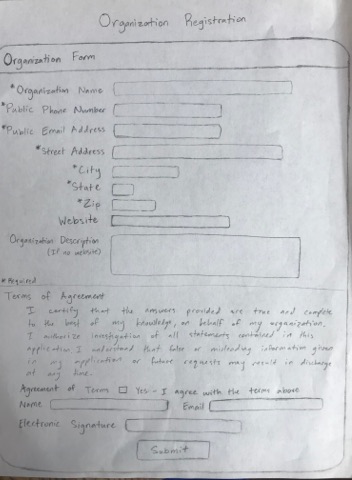 Organization Registration
Organization Form
*Organization Name
*Public Phone Number
*Public Email Address
*Street Address
*City
*State
*Zip
Website
Organization Description
(If no website)
*Required
Terms of Agreement
I certify that the answers provided are true and complete
to the best of my knowledge, on behalf of my organization.
I authorize investigation of all statements contained in this
application. I understand that false or misleading information given
in my application or future requests may result in discharge
at any time.
Agreement of Terms Yes - I agree with the terms above
Name Email
Electronic Signature
Submit